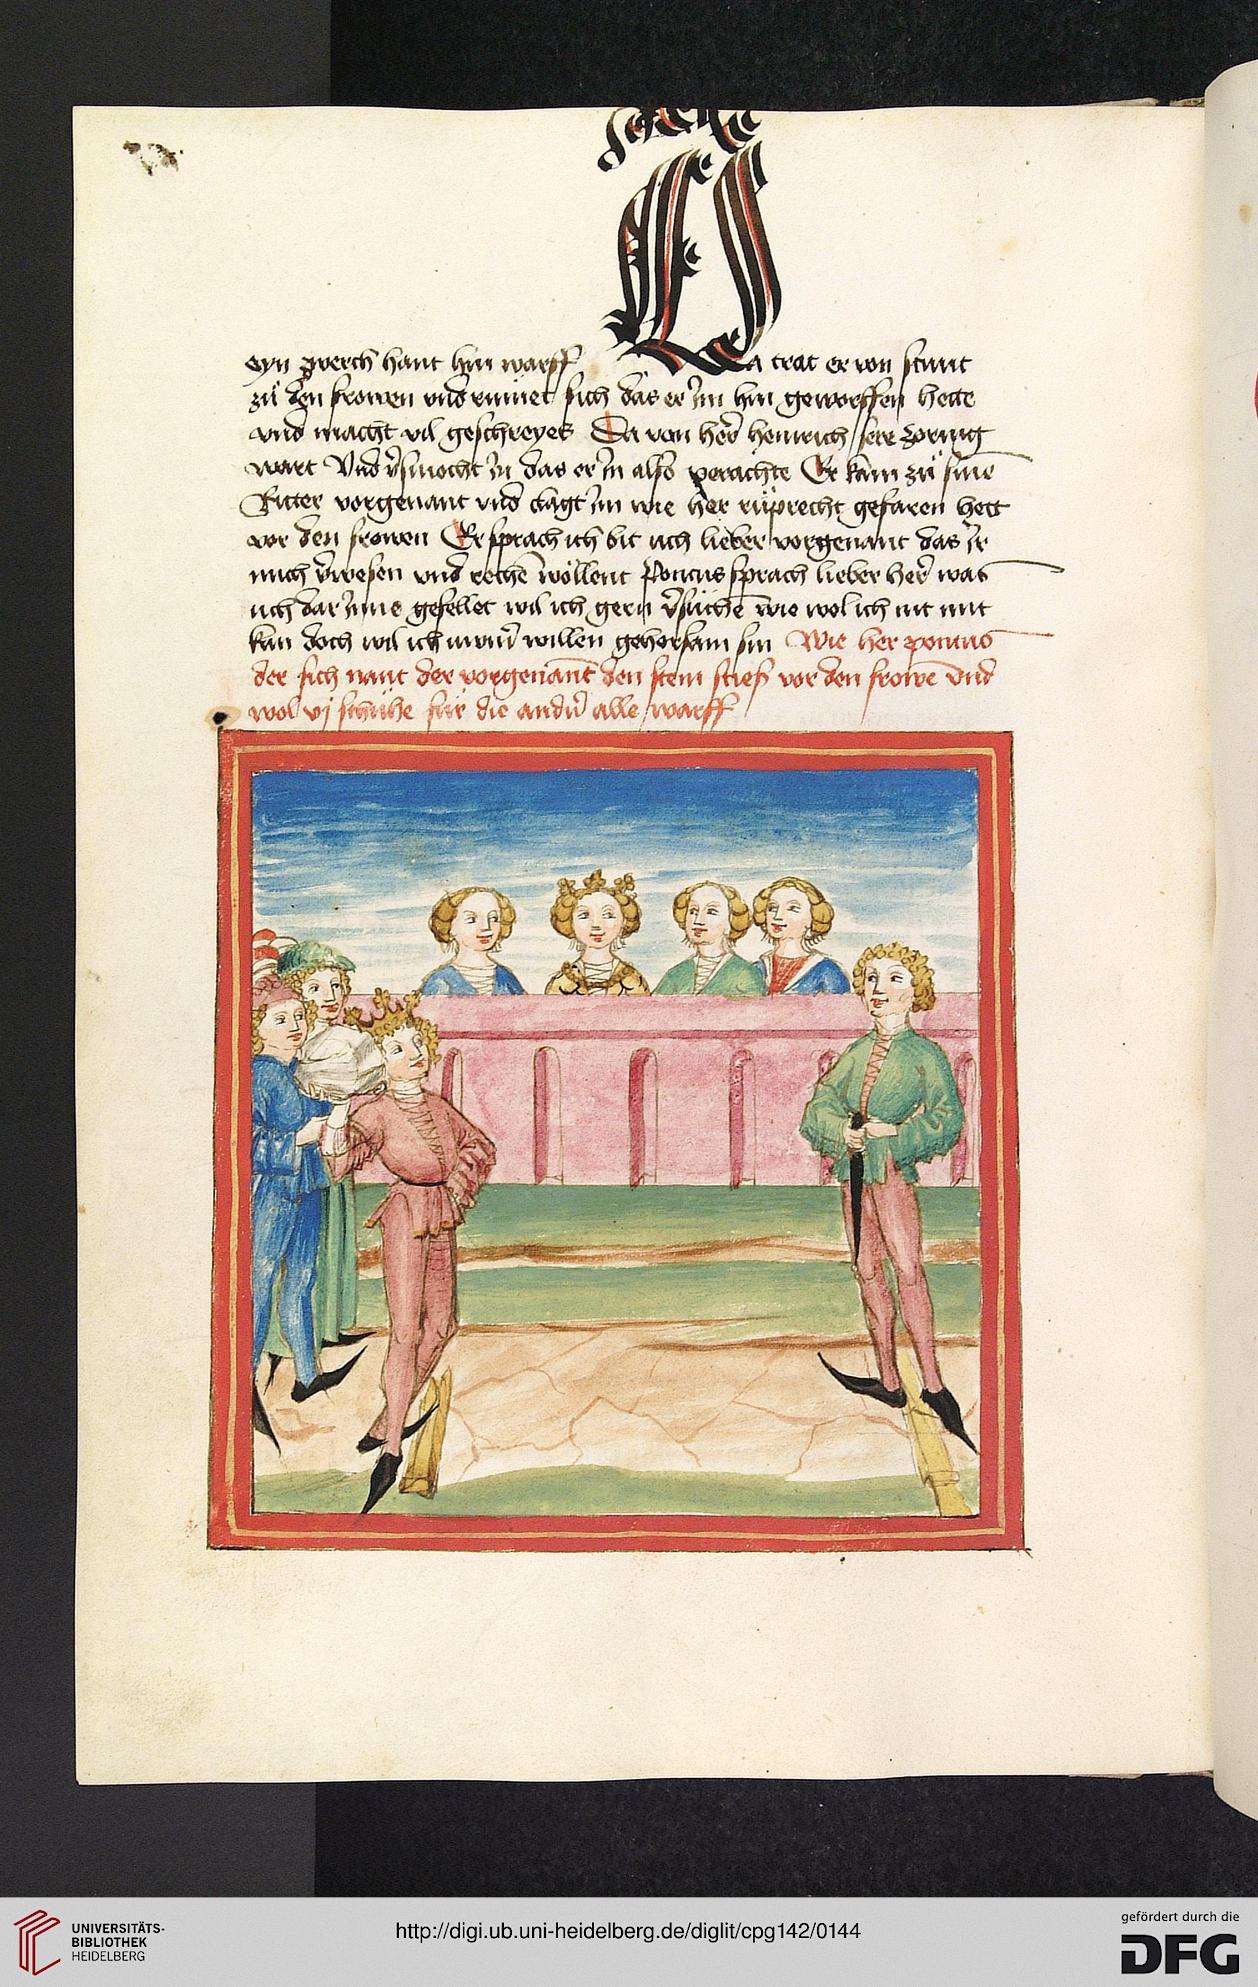 eyn zwerch hant hin warff Da trat er von stunt
zů den frowen vnd rümet sich das er im hin geworffen hette
vnd macht vil geschreyes Da von her heinrich sere zornig
wart Vnd v̓smocht in das er in also verachte Er kam zů sinē
Ritter vorgenant vnd clagt im wie her rüprecht gefaren hett
vor den frowen Er sprach ich bit uch lieber vorgenant das ir
mich v̓wesen vnd rechē wöllent Pontus sprach lieber her was
uch dar inne gefellet wil ich gern v̓süchē wie wol ich nit mit
kan doch wil ich willen gehorsam sin Wie her pontus
der sich nant der vorgenant den stein stieß vor den frowē vnd
wol vj schühe für die andn̓ alle warff
UNIVERSITÄTS-
BIBLIOTHEK
HEIDELBERG
http://digi.ub.uni-heidelberg.de/diglit/cpg142/0144
gefördert durch die
DFG